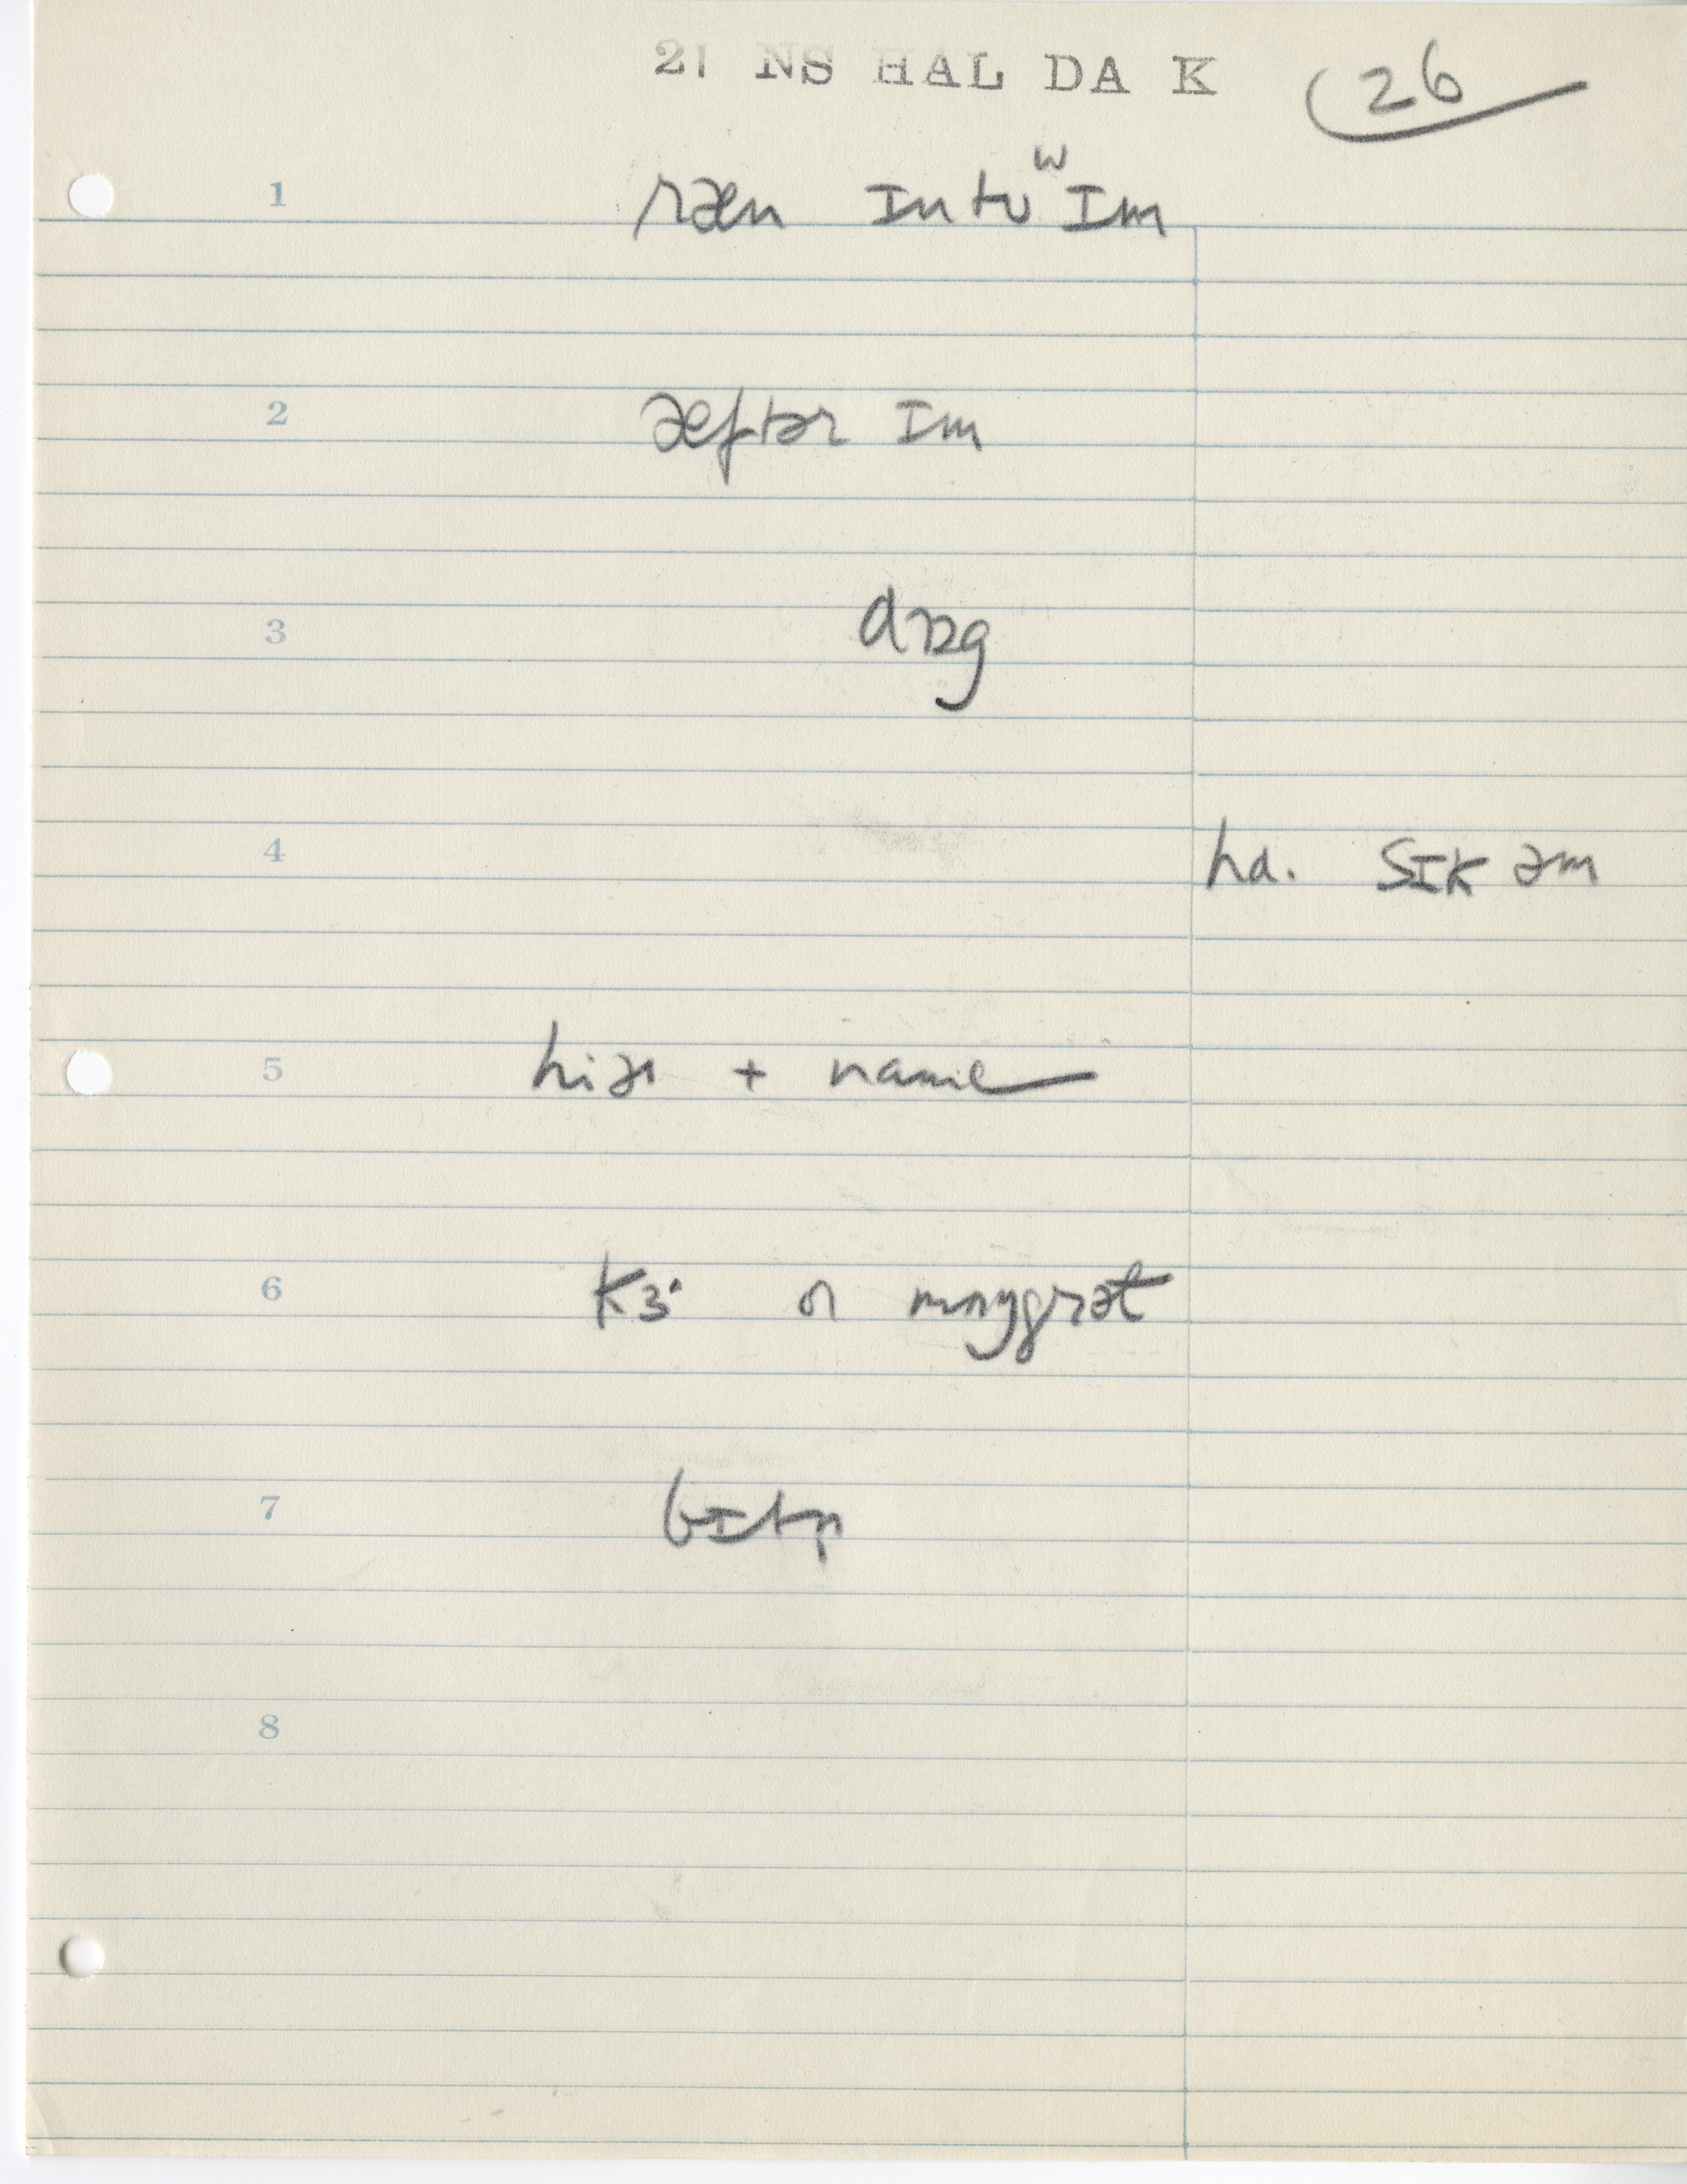 21 NS HAL DA K 26
1 ræn ɪntʊʷɪm
2 æftər ɪm
3 dɒg
4 ha. sɪk əm
5 hiər + name
6 kɜ˞ ər mʌŋgrət
7 bɪtn̩
8